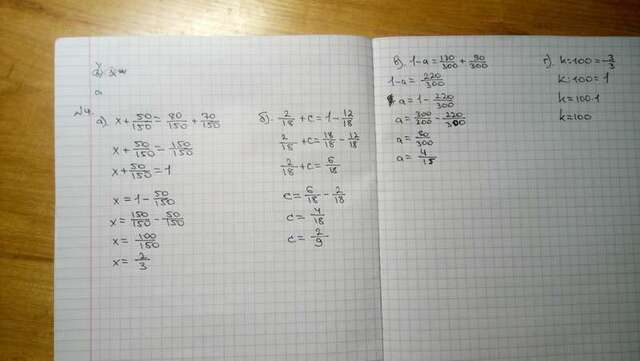 №4.
а). x + 50/150 = 80/150 + 70/150
x + 50/150 = 150/150
x + 50/150 = 1
x = 1 - 50/150
x = 150/150 - 50/150
x = 100/150
x = 2/3
б). 2/18 + c = 1 - 12/18
2/18 + c = 18/18 - 12/18
2/18 + c = 6/18
c = 6/18 - 2/18
c = 4/18
c = 2/9
в). 1 - a = 130/300 + 90/300
1 - a = 220/300
a = 1 - 220/300
a = 300/300 - 220/300
a = 80/300
a = 4/15
г). k:100 = 3/3
k:100 = 1
k = 100·1
k = 100